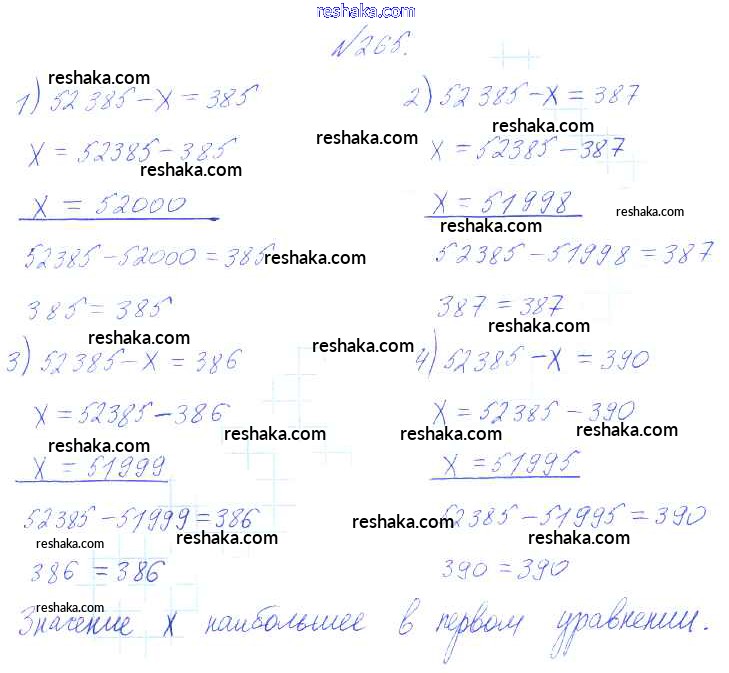 reshaka.com
№265.
reshaka.com
1) 52 385 - x = 385
x = 52385 - 385
reshaka.com
x = 52000
52385 - 52000 = 385
reshaka.com
385 = 385
reshaka.com
2) 52 385 - x = 387
reshaka.com
reshaka.com
x = 52385 - 387
x = 51998
reshaka.com
reshaka.com
52385 - 51998 = 387
387 = 387
reshaka.com
reshaka.com
3) 52385 - x = 386
x = 52385 - 386
reshaka.com
reshaka.com
x = 51999
52385 - 51999 = 386
reshaka.com
386 = 386
4) 52385 - x = 390
x = 52385 - 390
reshaka.com
reshaka.com
x = 51995
52385 - 51995 = 390
reshaka.com
reshaka.com
390 = 390
reshaka.com
Значение x наибольшее в первом уравнении.